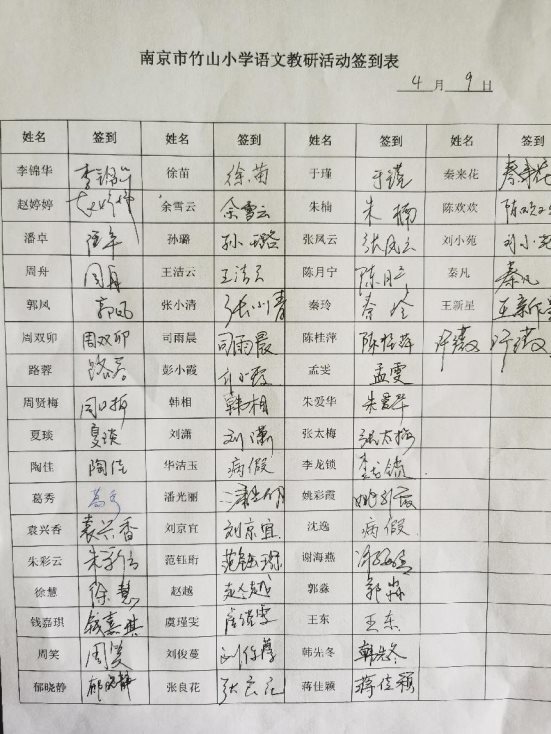 南京市竹山小学语文教研活动签到表
4 月 9 日
姓名 签到 姓名 签到 姓名 签到 姓名 签到
李锦华 李锦华 徐苗 徐苗 于瑾 于瑾 秦来花 秦来花
赵婷婷 赵婷婷 余雪云 余雪云 朱楠 朱楠 陈欢欢 陈欢欢
潘卓 潘卓 孙璐 孙璐 张凤云 张凤云 刘小苑 刘小苑
周舟 周舟 王洁云 王洁云 陈月宁 陈月宁 秦凡 秦凡
郭凤 郭凤 张小清 张小清 秦玲 秦玲 王新星 王新星
周双卯 周双卯 司雨晨 司雨晨 陈桂萍 陈桂萍 许薇 许薇
路蓉 路蓉 彭小霞 彭小霞 孟雯 孟雯
周贤梅 韩相 韩相 朱爱华 朱爱华
夏琰 夏琰 刘潇 刘潇 张太梅 张太梅
陶佳 陶佳 华洁玉 病假 李龙锁 李龙锁
葛秀 葛秀 潘光丽 姚彩霞 姚彩霞
袁兴香 袁兴香 刘京宜 刘京宜 沈逸 病假
朱彩云 朱彩云 范钰珩 范钰珩 谢海燕
徐慧 徐慧 赵越 赵越 郭淼 郭淼
钱嘉琪 钱嘉琪 虞瑾雯 虞瑾雯 王东 王东
周笑 周笑 刘俊蔓 刘俊蔓 韩先冬 韩先冬
郁晓静 郁晓静 张良花 张良花 蒋佳颖 蒋佳颖